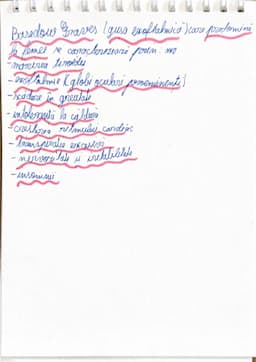 Basedow Graves (gușa exoftalmică) care predomină
la femei se caracterizează prin:
- mărirea tiroidei
- exoftalmie (globi oculari proeminenți)
- scădere în greutate
- intoleranță la căldură
- creșterea ritmului cardiac
- transpirație excesivă
- nervozitate și iritabilitate
- insomnii